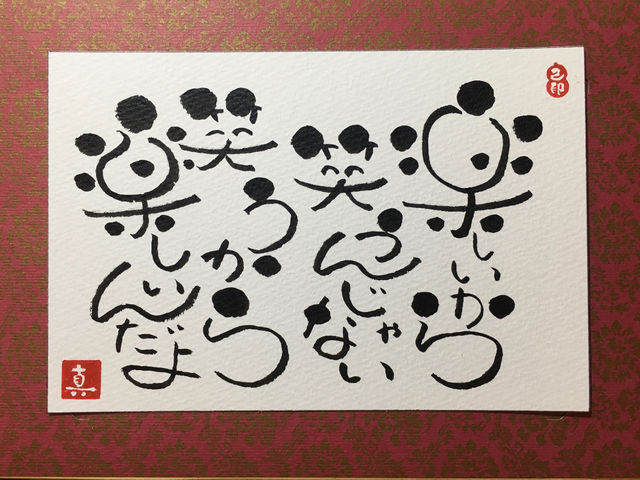 楽しいから
笑うんじゃない
笑うから
楽しいんだよ
真